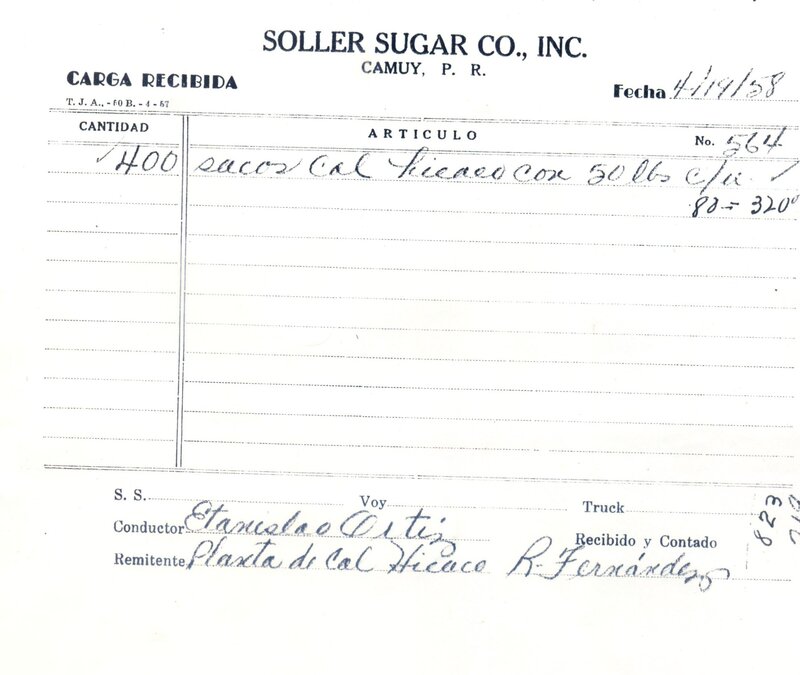 SOLLER SUGAR CO., INC.
CAMUY, P. R.
CARGA RECIBIDA
Fecha 4/19/58
T. J. A., - 60 B. - 4 - 57
CANTIDAD
ARTICULO
No. 564
400 sacos Cal hicaco con 50 lbs c/u
80 = 320
S. S.
Voy
Truck
Conductor Etanislao Ortiz
Recibido y Contado
Remitente Planta de Cal Hicaco R. Fernández
823